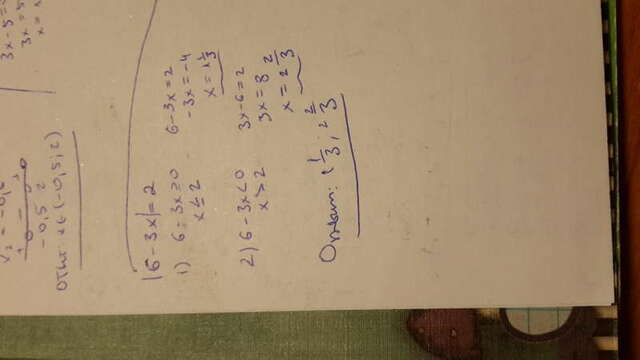 3x-5=
3x=5
-0,5 2
Ответ: x∈(-0,5; 2)
|6-3x|=2
1) 6-3x≥0 6-3x=2
x≤2 -3x=-4
x=1 1/3
2) 6-3x<0 3x-6=2
x>2 3x=8
x=2 2/3
Ответ: 1 1/3; 2 2/3